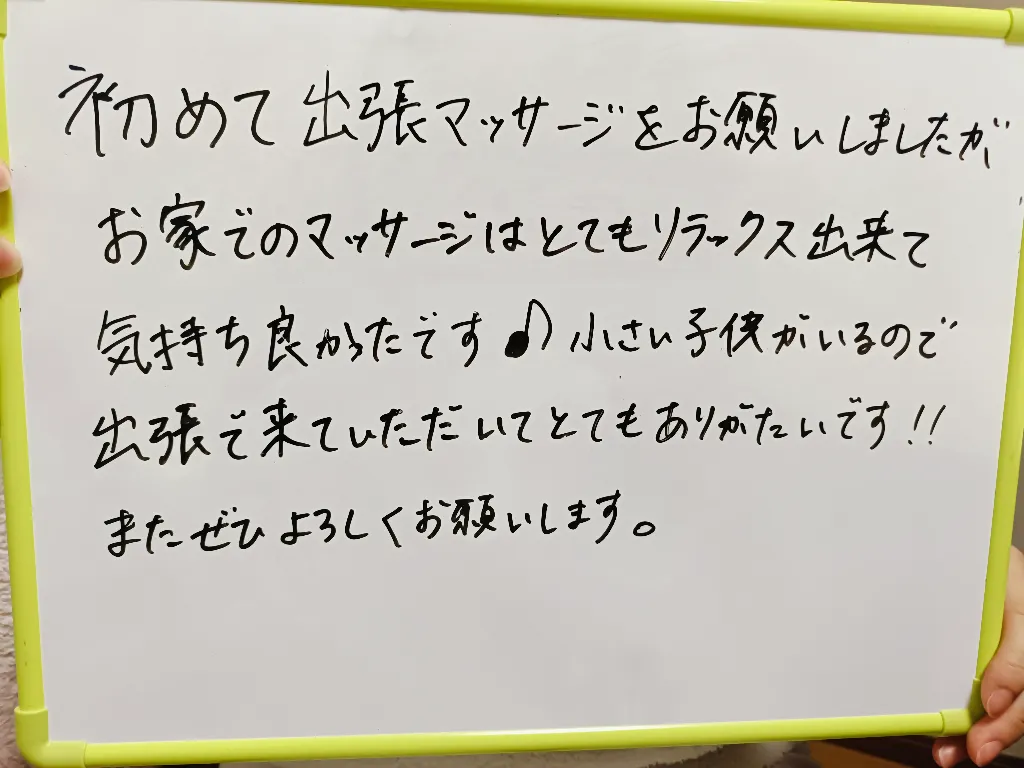 初めて出張マッサージをお願いしましたが
お家でのマッサージはとてもリラックス出来て
気持ち良かったです♪小さい子供がいるので
出張で来ていただいてとてもありがたいです!!
またぜひよろしくお願いします。